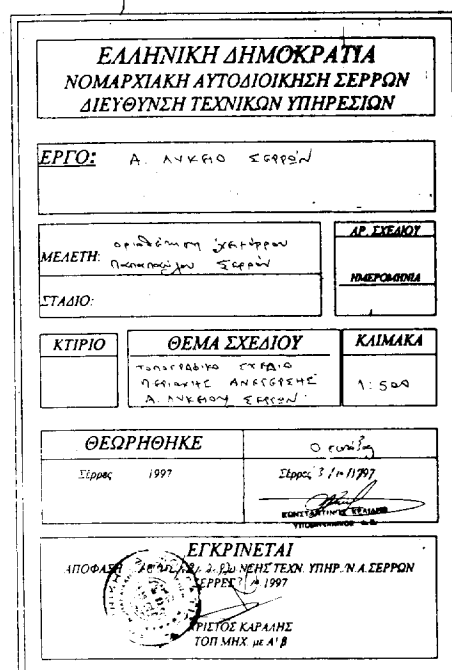 ΕΛΛΗΝΙΚΗ ΔΗΜΟΚΡΑΤΙΑ
ΝΟΜΑΡΧΙΑΚΗ ΑΥΤΟΔΙΟΙΚΗΣΗ ΣΕΡΡΩΝ
ΔΙΕΥΘΥΝΣΗ ΤΕΧΝΙΚΩΝ ΥΠΗΡΕΣΙΩΝ
ΕΡΓΟ: Α. ΛΥΚΕΙΟ ΣΕΡΡΩΝ
ΜΕΛΕΤΗ: οριοθέτηση χειμάρρου
Σερρών
ΣΤΑΔΙΟ:
ΑΡ. ΣΧΕΔΙΟΥ
ΗΜΕΡΟΜΗΝΙΑ
ΚΤΙΡΙΟ
ΘΕΜΑ ΣΧΕΔΙΟΥ
ΤΟΠΟΓΡΑΦΙΚΟ ΣΧΕΔΙΟ
ΠΕΡΙΟΧΗΣ ΑΝΕΓΕΡΣΗΣ
Α. ΛΥΚΕΙΟΥ ΣΕΡΡΩΝ
ΚΛΙΜΑΚΑ
1:500
ΘΕΩΡΗΘΗΚΕ
Σέρρες 1997
Σέρρες 3/10/1997
ΕΓΚΡΙΝΕΤΑΙ
ΑΠΟΦΑΣΗ ΝΣΗΣ ΤΕΧΝ. ΥΠΗΡ. Ν.Α. ΣΕΡΡΩΝ
ΣΕΡΡΕΣ 1997
ΧΡΙΣΤΟΣ ΚΑΡΑΛΗΣ
ΤΟΠ ΜΗΧ. με Α' β